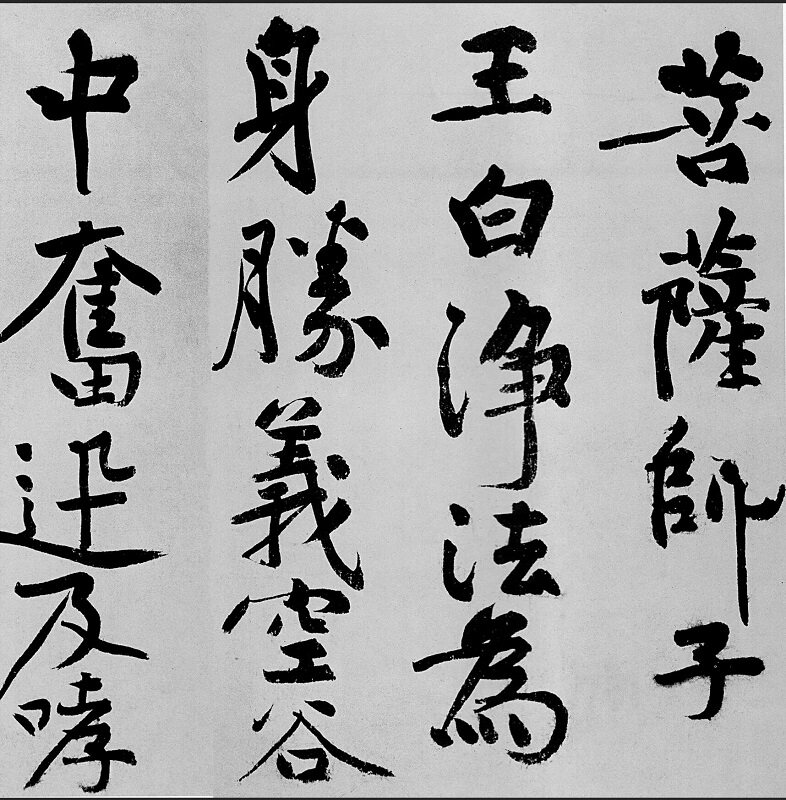 菩薩師子
王白淨法為
身勝義空谷
中奮迅及哮